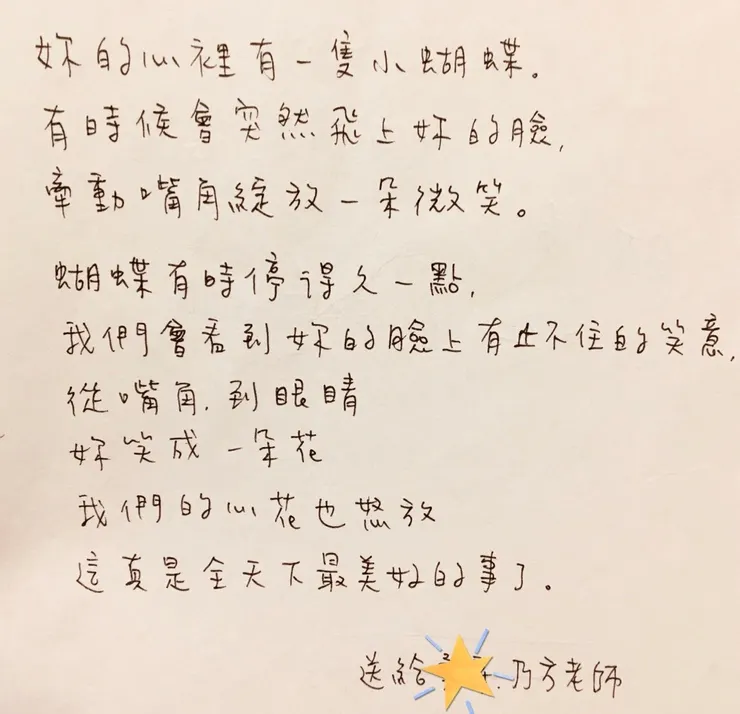 妳的心裡有一隻小蝴蝶。
有時候會突然飛上妳的臉,
牽動嘴角綻放一朵微笑。
蝴蝶有時停得久一點,
我們會看到妳的臉上有止不住的笑意,
從嘴角,到眼睛
妳笑成一朵花
我們的心花也怒放
這真是全天下最美好的事了。
送給 乃方老師